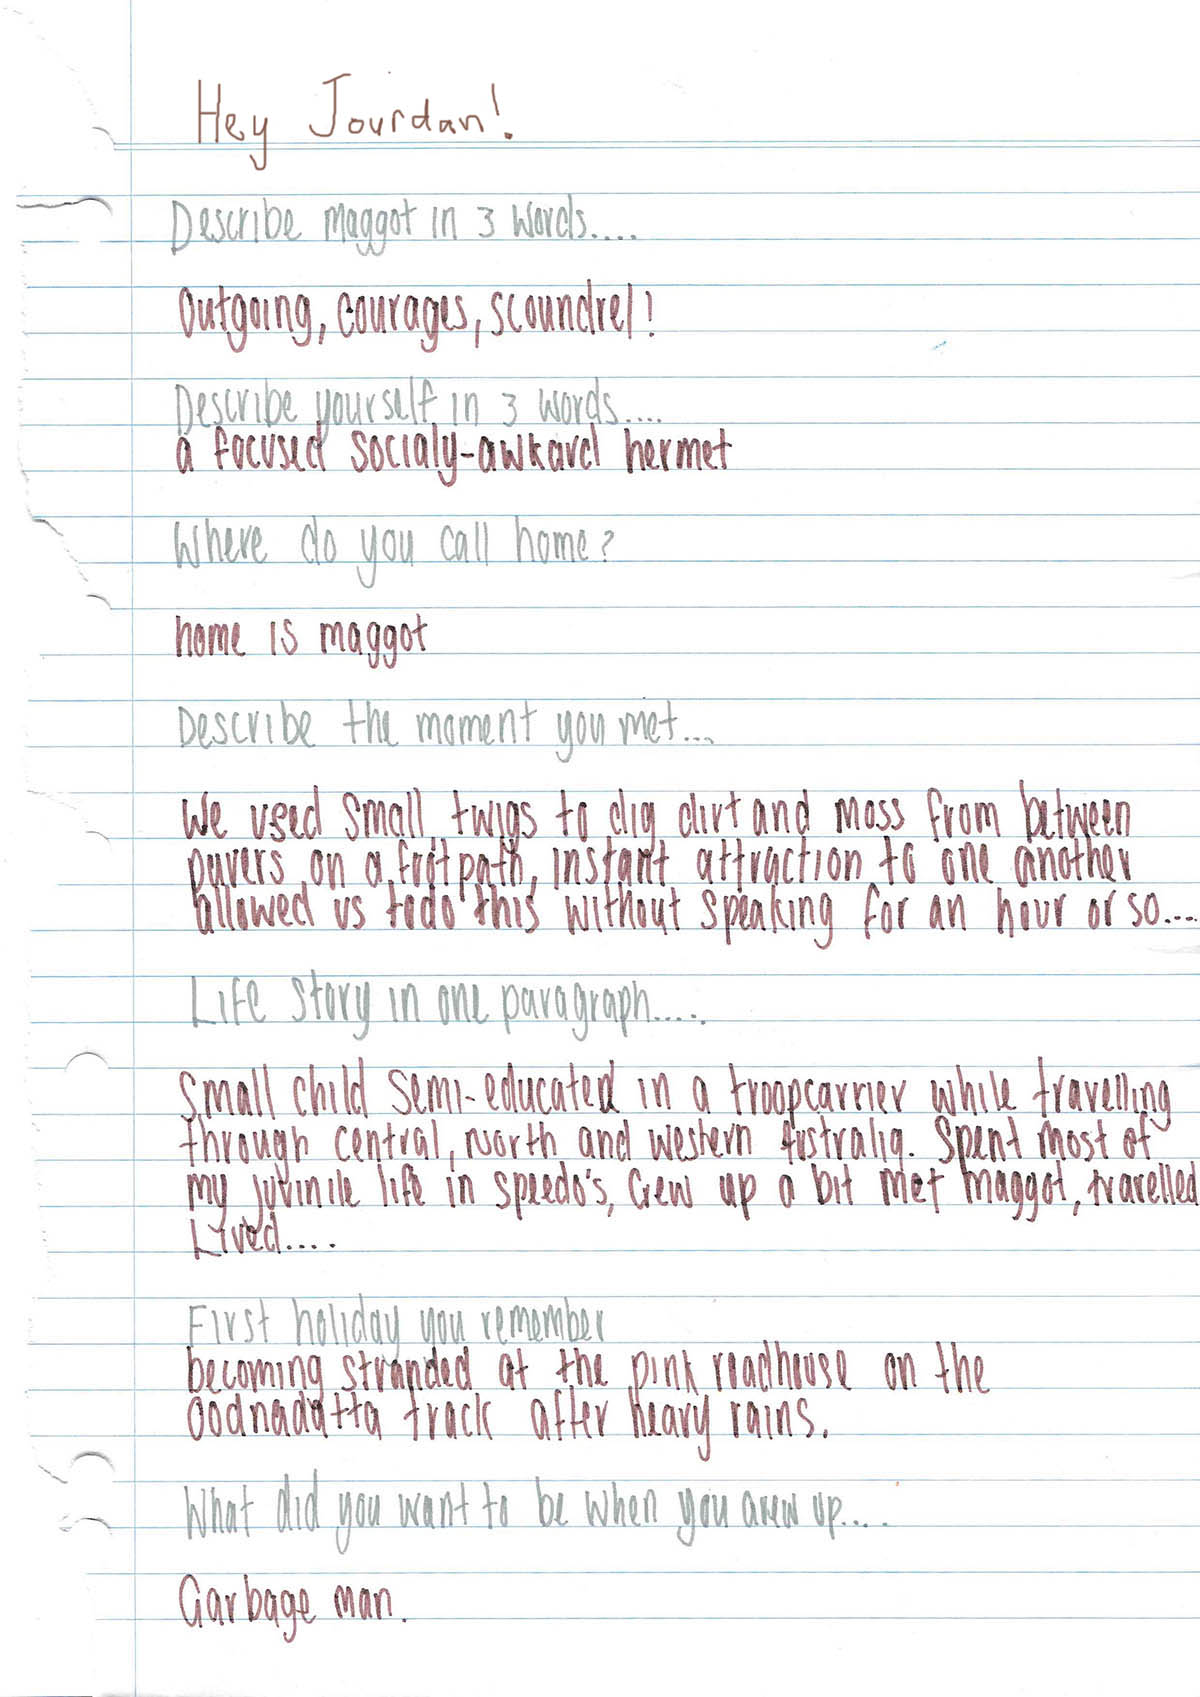 Hey Jourdan!
Describe maggot in 3 words....
Outgoing, courages, scoundrel!
Describe yourself in 3 words....
a focused socialy-awkard hermet
Where do you call home?
home is maggot
Describe the moment you met...
We used small twigs to dig dirt and moss from between
pavers on a footpath, instant attraction to one another
allowed us todo this without speaking for an hour or so....
Life story in one paragraph.....
Small child semi-educated in a troopcarrier while travelling
through central, north and western Australia. Spent most of
my juvinile life in speedo's, Grew up a bit met maggot, travelled
Lived....
First holiday you remember
becoming stranded at the pink roadhouse on the
Oodnadatta track after heavy rains.
What did you want to be when you grew up....
Garbage man.